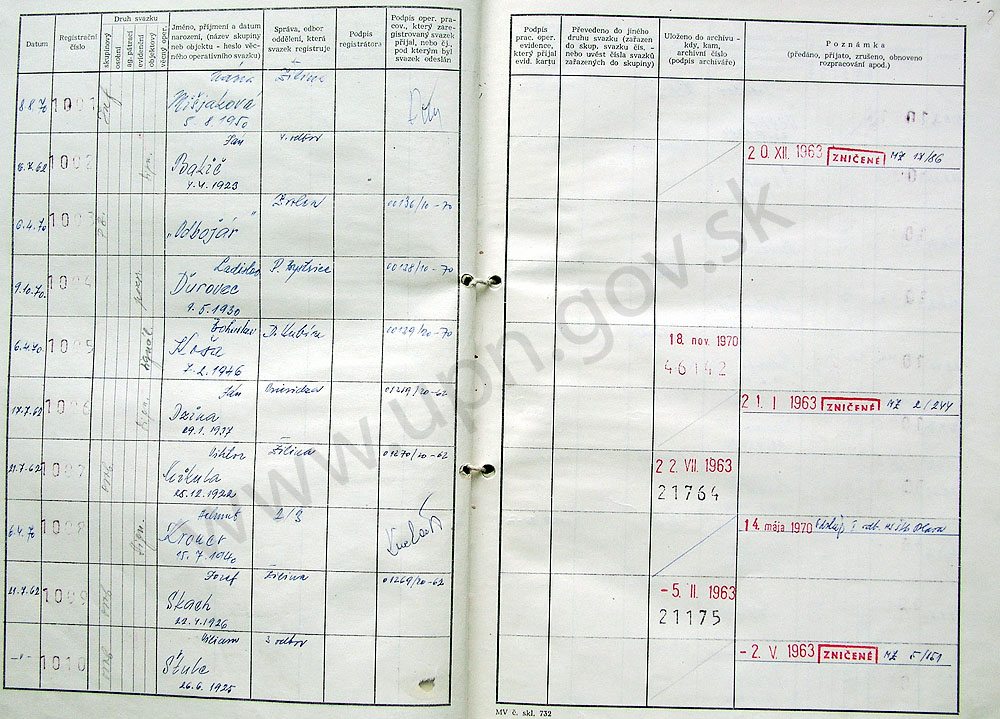 Datum
Registrační číslo
Druh svazku
skupinový
osobní
ag. pátrací
evidenční
objektový
věcný oper.
Jméno, příjmení a datum
narození, (název skupiny
neb objektu - heslo věc-
ného operativního svazku)
Správa, odbor
oddělení, která
svazek registruje
Podpis
registrátora
Podpis oper. pra-
cov., který zare-
gistrovaný svazek
přijal, nebo čj.,
pod kterým byl
svazek odeslán
Podpis
prac. oper.
evidence,
který přijal
evid. kartu
Převedeno do jiného
druhu svazku (zařazen
do skup. svazku čís. -
nebo uvést čísla svazků
zařazených do skupiny)
Uloženo do archivu -
kdy, kam,
archivní číslo
(podpis archiváře)
Poznámka
(předáno, přijato, zrušeno, obnoveno
rozpracování apod.)
8.8.70 1001 Mišjaková Žilina
5.8.1950
1002 Ján
Balič
4.4.1923
20. XII. 1963 ZNIČENÉ MZ 17/86
6.4.70 1003 „Odbojár" Zvolen 00136/20-70
9.10.70. 1004 Ladislav
Ďurovec
1.5.1930
00128/20-70
6.4.70 1005 Bohuslav D. Kubín 00129/20-70
Koša
7.2.1946
18. nov. 1970
46142
17.7.62 1006 Ján Prievidza 01259/20-62
Dzina
29.1.1937
21. I 1963 ZNIČENÉ MZ 2/244
21.7.62 1007 Viktor Žilina 01270/20-62
Čikula
25.12.1922
22. VII. 1963
21764
6.4.70 1008 Helmut 2/3
Kroner
15.7.1940
14. mája 1970
21.7.62 1009 Jozef Žilina 01269/20-62
Skach
22.4.1926
-5. II. 1963
21175
-"- 1010 Viliam 3 odbor
Štula
26.6.1925
-2. V. 1963 ZNIČENÉ MZ 5/151
MV č. skl. 732
www.upn.gov.sk